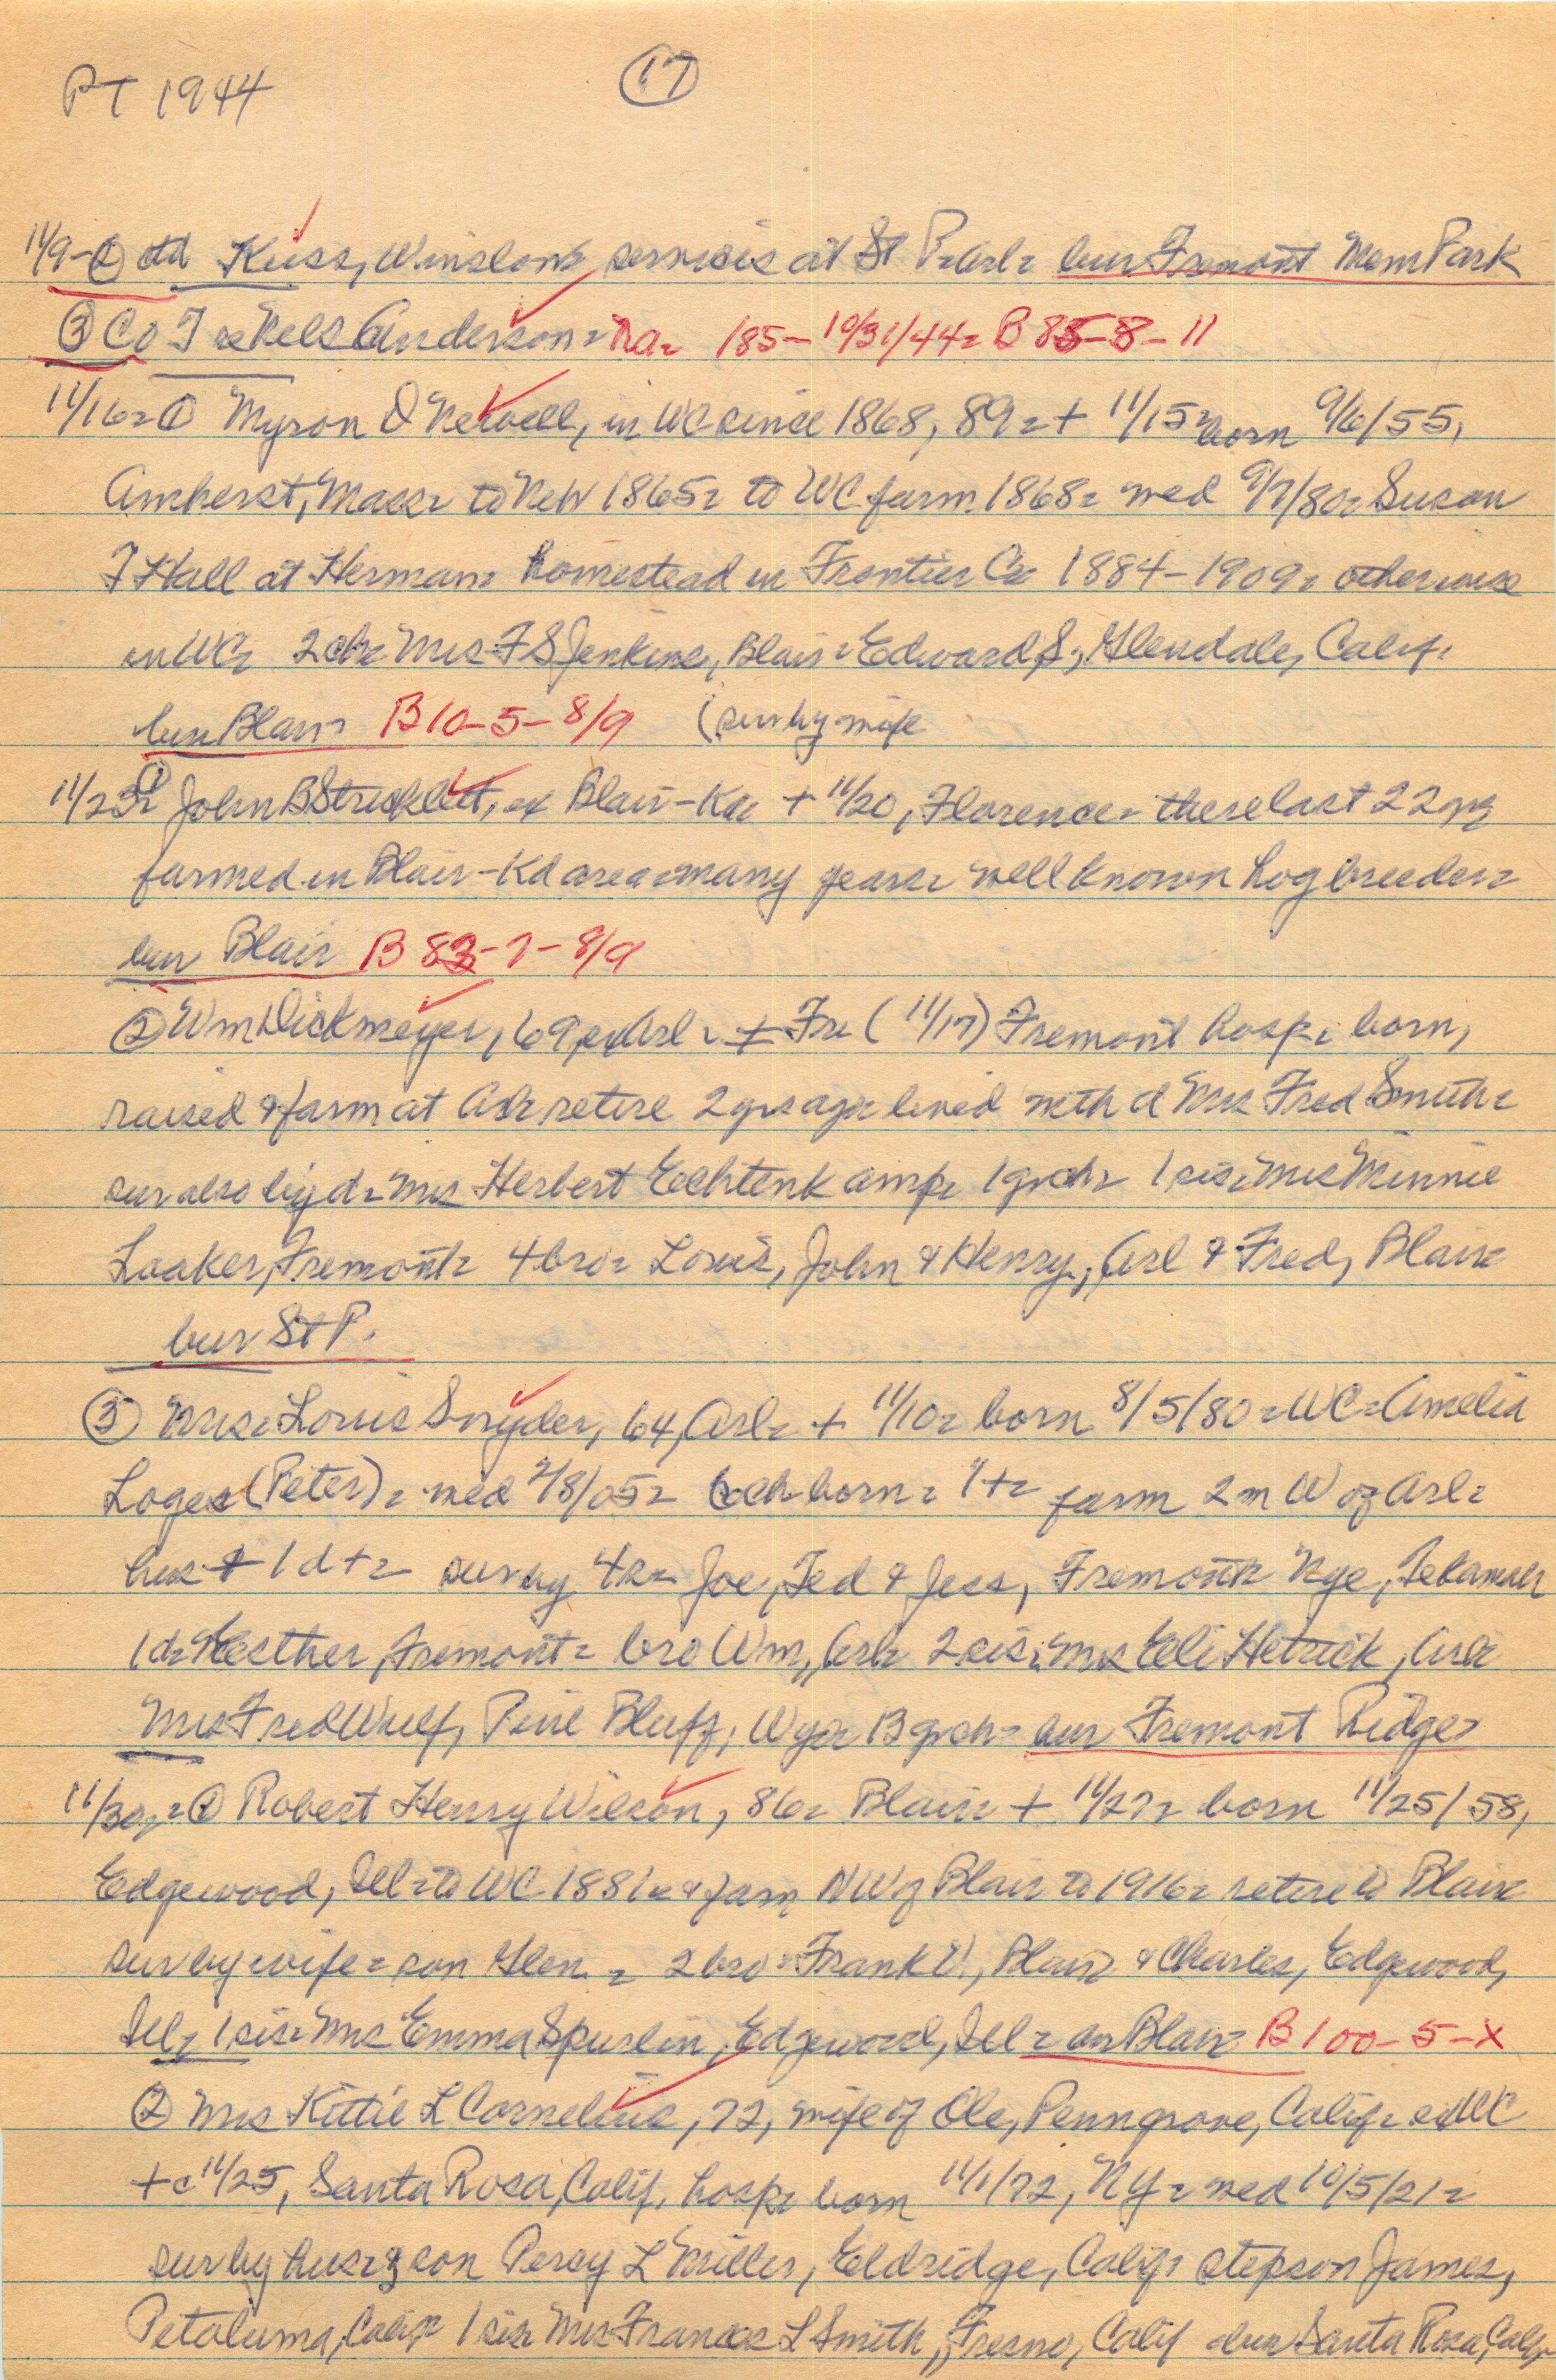 PT 1944 (17)
11/9-② Kuss, Winslow= services at St P= Arl= bur Fremont Mem Park
③ Co T= Nels Anderson= na= 185- 10/31/44= B 85-8-11
11/16= ① Myron D Newell, in WC since 1868, 89= + 11/15= born 9/6/55,
Amherst, Mass= to Neb 1865= to WC farm 1868= med 9/7/80= Susan
F Hall at Herman= homestead in Frontier Co= 1884-1909= otherwise
in WC= 2 ch= Mrs F S Jenkins, Blair= Edward S, Glendale, Calif=
bur Blair= B10-5-8/9 (sur by wife
11/23= ① John B Stricklett, ex Blair-Ka= + 11/20, Florence= there last 22 yrs
farmed in Blair-Kd area= many years= well known hog breeder=
bur Blair B 83-7-8/9
② Wm Dickmeyer, 69, Arl= + Fri (11/17) Fremont hosp= born,
raised & farm at Arl= retire 2 yrs ago= lived with d Mrs Fred Smith=
sur also by d= Mrs Herbert Echtenkamp= 1 grch= 1 sis= Mrs Minnie
Laaker, Fremont= 4 bro= Louis, John & Henry, Arl & Fred, Blair=
bur St P.
③ Mrs= Louis Snyder, 64, Arl= + 11/10= born 8/5/80= WC= Amelia
(Peter)= med 2/8/05= 6 ch born= 1+= farm 2 m W of Arl=
hus + 1 d += sur by 4 s= Joe, Ted & Jess, Fremont= Nye, Tekamah
1 d= Esther, Fremont= bro Wm, Arl= 2 sis= Mrs Eli Hetrick, Arl=
Mrs Fred Wulf, Pine Bluff, Wyo= 13 grch= bur Fremont Ridge=
11/30= ① Robert Henry Wilson, 86= Blair= + 11/27= born 11/25/58,
Edgewood, Ill= to WC 1881= & farm NW of Blair to 1916= retire to Blair=
sur by wife= son Glen= 2 bro= Frank W, Blair & Charles, Edgewood,
Ill= 1 sis= Mrs Emma Spurlin, Edgewood, Ill= bur Blair= B100-5-X
② Mrs Kittie L Cornelius, 72, wife of Ole, Penngrove, Calif= ex WC
+ c 11/25, Santa Rosa, Calif, hosp= born 11/1/72, NY= med 10/5/21=
sur by hus= & son Percy L Miller, Eldridge, Calif= stepson James,
Petaluma, Calif= 1 sis= Mrs Frances L Smith, Fresno, Calif= bur Santa Rosa, Calif=